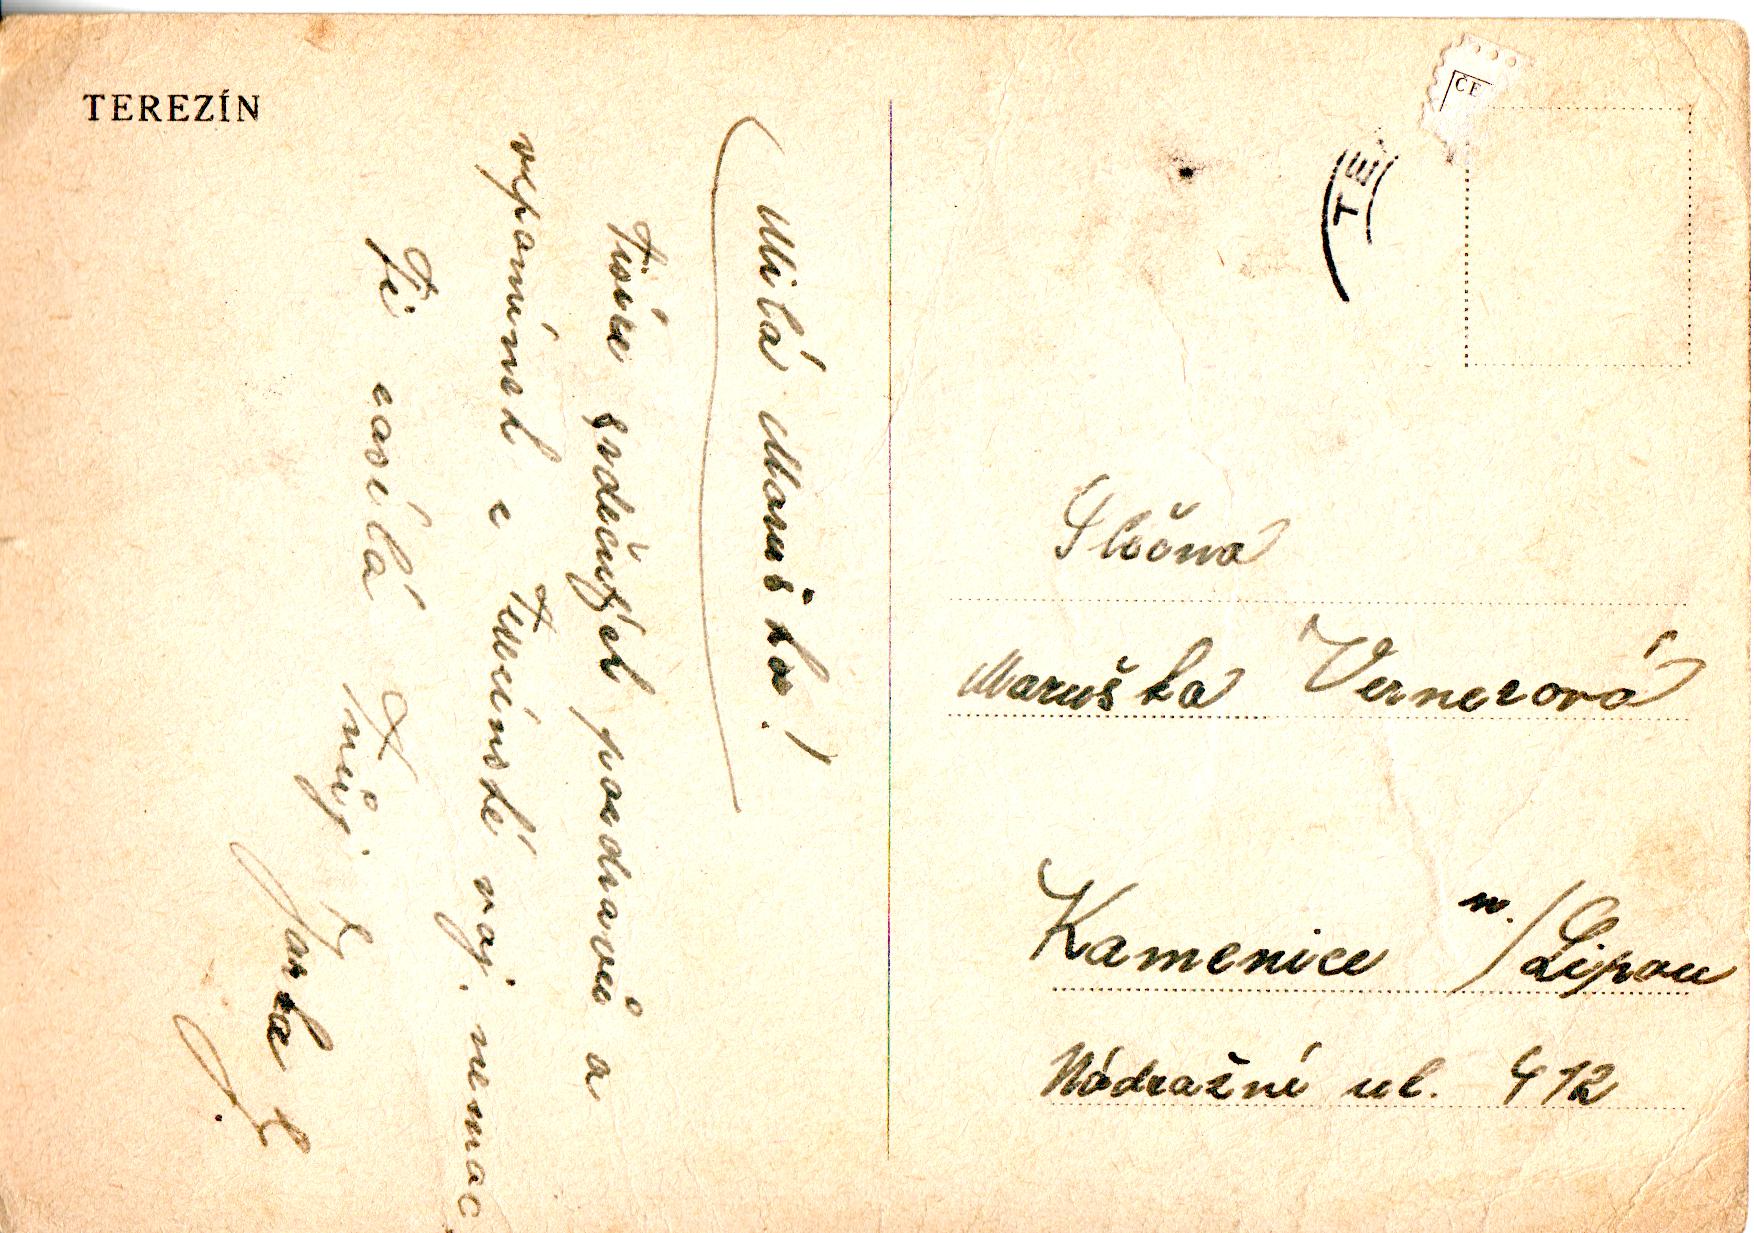 TEREZÍN
ČE
TE
Milá Maruško!
Tisíce srdečných pozdravů a
vzpomínek z Terezínské voj. nemoc.
Ti zasílá
Tvůj
Jarka
Slečna
Maruška Vernerová
Kamenice n./Lipou
Nádražní ul. 412